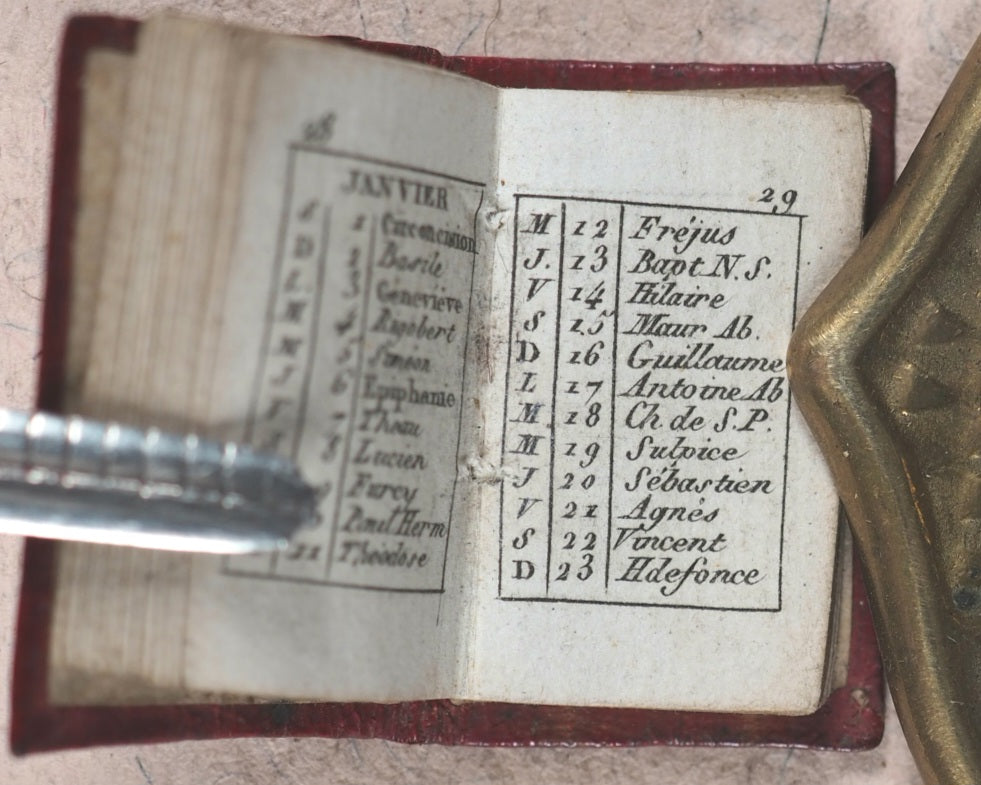 28
JANVIER
S 1 Circoncision
D 2 Basile
L 3 Geneviève
M 4 Rigobert
M 5 Siméon
J 6 Epiphanie
V 7 Theau
S 8 Lucien
9 Furcy
Paul Herm
11 Théodose
29
M 12 Fréjus
J. 13 Bapt N. S.
V 14 Hilaire
S 15 Maur Ab.
D 16 Guillaume
L 17 Antoine Ab
M 18 Ch de S. P.
M 19 Sulpice
J 20 Sébastien
V 21 Agnès
S 22 Vincent
D 23 Ildefonce